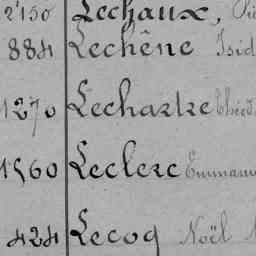 2150 Lechaux,
884 Lechêne Isid
1270 Lechartre Théod
1560 Leclerc Emmanu
424 Lecoq Noël